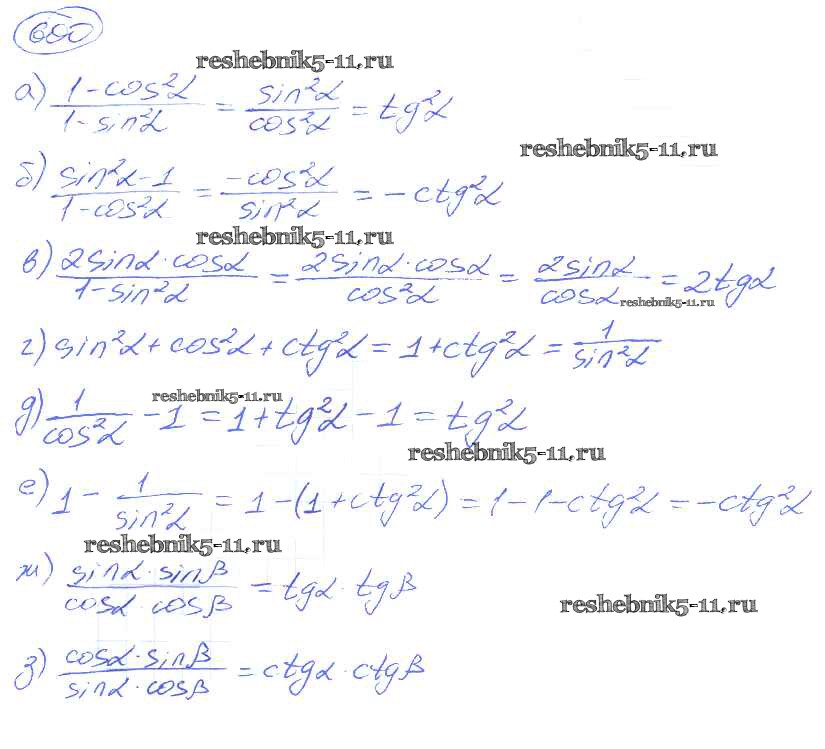 680
reshebnik5-11.ru
а) (1-cos²α)/(1-sin²α) = sin²α/cos²α = tg²α
reshebnik5-11.ru
б) (sin²α-1)/(1-cos²α) = -cos²α/sin²α = -ctg²α
reshebnik5-11.ru
в) (2sinα·cosα)/(1-sin²α) = (2sinα·cosα)/cos²α = 2sinα/cosα = 2tgα
reshebnik5-11.ru
г) sin²α+cos²α+ctg²α = 1+ctg²α = 1/sin²α
reshebnik5-11.ru
д) 1/cos²α - 1 = 1+tg²α - 1 = tg²α
reshebnik5-11.ru
е) 1 - 1/sin²α = 1-(1+ctg²α) = 1-1-ctg²α = -ctg²α
reshebnik5-11.ru
ж) (sinα·sinβ)/(cosα·cosβ) = tgα·tgβ
reshebnik5-11.ru
з) (cosα·sinβ)/(sinα·cosβ) = ctgα·ctgβ